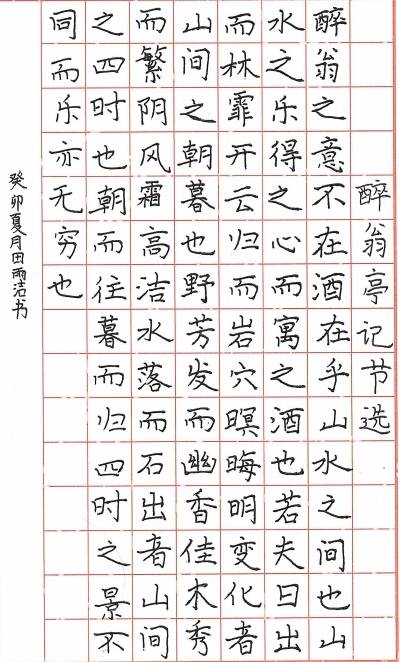 醉翁亭记节选
醉翁之意不在酒在乎山水之间也山
水之乐得之心而寓之酒也若夫日出
而林霏开云归而岩穴暝晦明变化者
山间之朝暮也野芳发而幽香佳木秀
而繁阴风霜高洁水落而石出者山间
之四时也朝而往暮而归四时之景不
同而乐亦无穷也
癸卯夏月田雨洁书